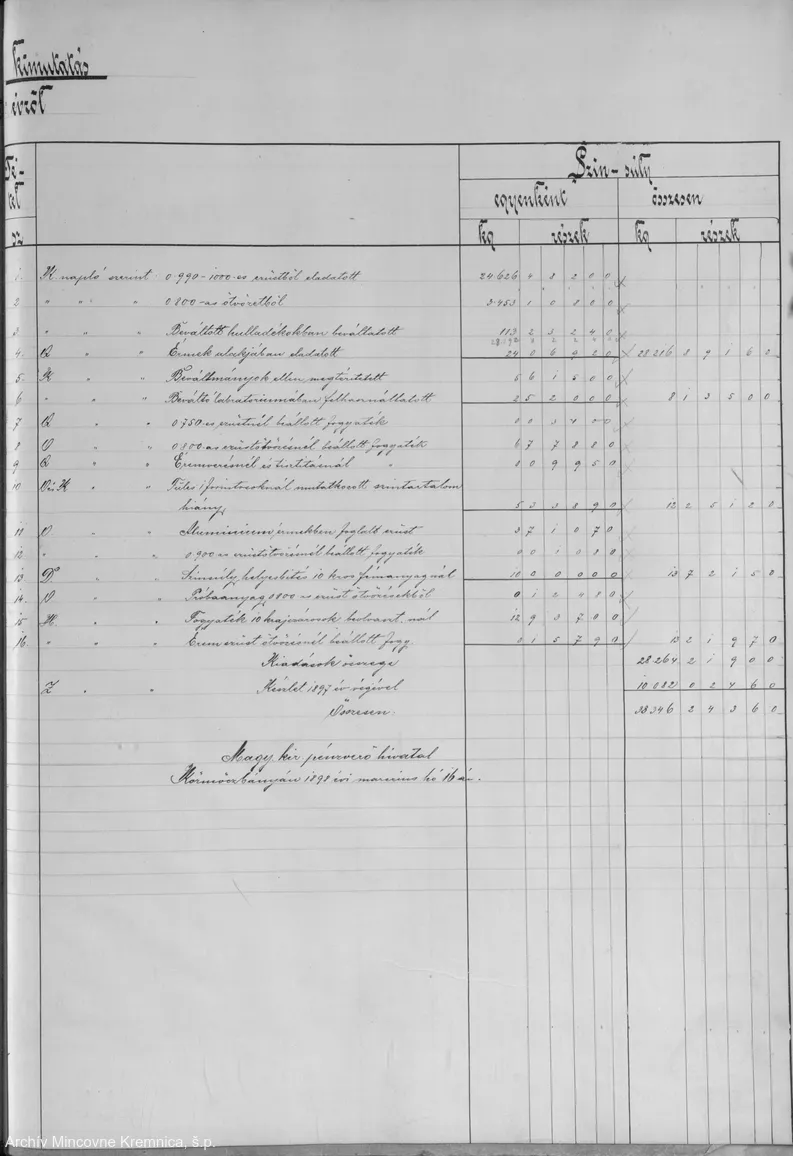 kimutatás
évről
Té-
tel
sz
Szin-súly
egyenként összesen
kg részek kg részek
1. K napló szerint 0·990-1000-es ezüstből eladatott 24.626 4 8 2 0 0
2 " " " 0·800-as ötvözetből 3·453 1 0 8 0 0
3 " " " Beváltott hulladékokban beváltatott 113 2 3 2 4 0
4. " " Érmek alakjában eladatott 24 0 6 9 2 0 28.216 8 9 1 6 0
5. K " " Beváltmányok ellen megtéritetett 5 6 1 5 0 0
6 " " " Beváltó laboratoriumában felhasználtatott 2 5 2 0 0 0 8 1 3 5 0 0
7 " " 0·750-es ezüstnél beállott fogyaték 0 0 3 4 0 0
8 " " 0·800-as ezüstötvözésnél beállott fogyaték 6 7 7 8 8 0
9 " " Éremverésnél és tisztitásnál " 8 0 9 9 5 0
10 K " " 1 forintosoknál mutatkozott szintartalom
hiány 5 3 3 8 9 0 12 2 5 1 2 0
11 " " Aluminium érmekben foglalt ezüst 3 7 1 0 7 0
12 " " 0·900-es ezüstötvözésnél beállott fogyaték 0 0 1 0 8 0
13 " " helyesbités 10 kros fémanyagnál 10 0 0 0 0 0 13 7 2 1 5 0
14. " " Próbaanyag 0·800-es ezüst ötvözésekből 0 1 2 4 8 0
15 " " Fogyaték 10 krajczárosok beolvaszt. nál 12 9 3 7 0 0
16. " " " Érem ezüst ötvözésnél beállott fogy. 0 1 5 7 9 0 13 2 1 9 7 0
Kiadások összege 28.264 2 1 9 0 0
Z " " Készlet 1897 év végével 10.082 0 2 4 6 0
Összesen: 38.346 2 4 3 6 0
Magy. kir. pénzverő hivatal
Körmöczbányán 1898 évi marczius hó 16 án.
Archív Mincovne Kremnica, š.p.